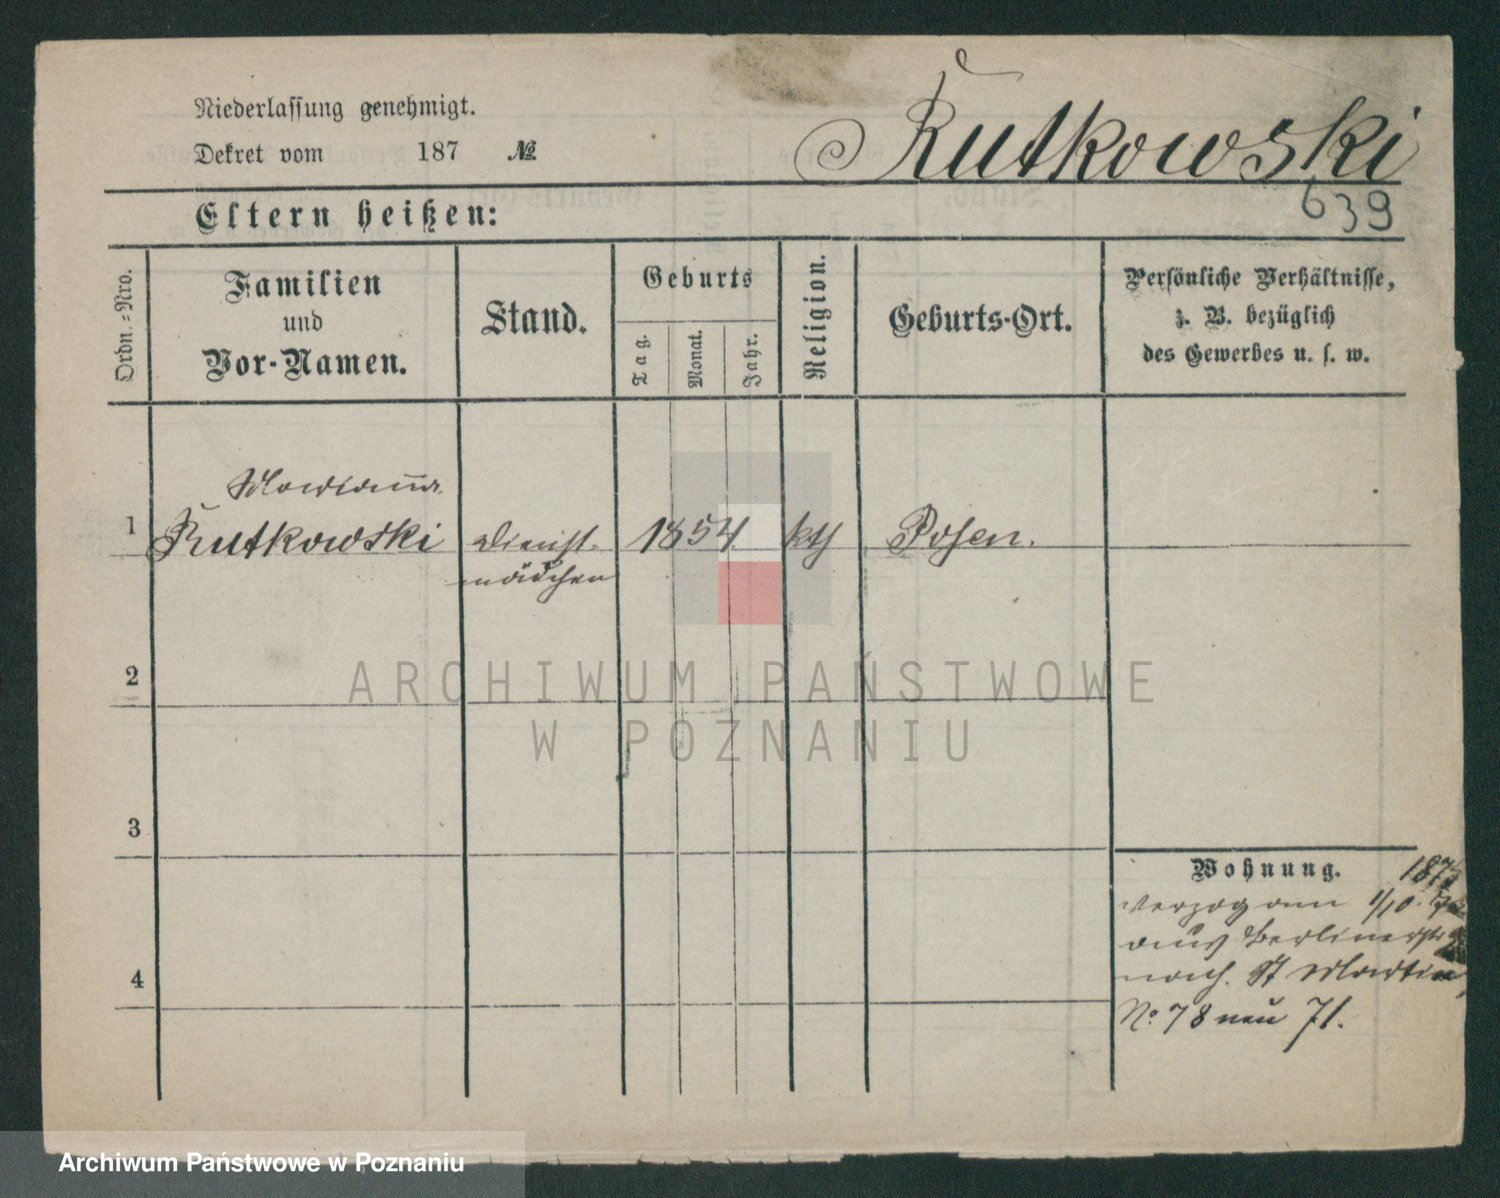 Niederlassung genehmigt.
Dekret vom 187 №
Rutkowski
639
Eltern heißen:
Ordn.-Nro.
Familien
und
Vor-Namen.
Stand.
Geburts
Tag.
Monat.
Jahr.
Religion.
Geburts-Ort.
Persönliche Verhältnisse,
z. B. bezüglich
des Gewerbes u. s. w.
Marianna
1 Rutkowski Dienst- 1854 kth Posen.
mädchen
2
ARCHIWUM PAŃSTWOWE
W POZNANIU
3
Wohnung. 1873
verzog am 1/10.
aus Berlinerstr
nach St Martin
No 78 neu 71.
4
Archiwum Państwowe w Poznaniu